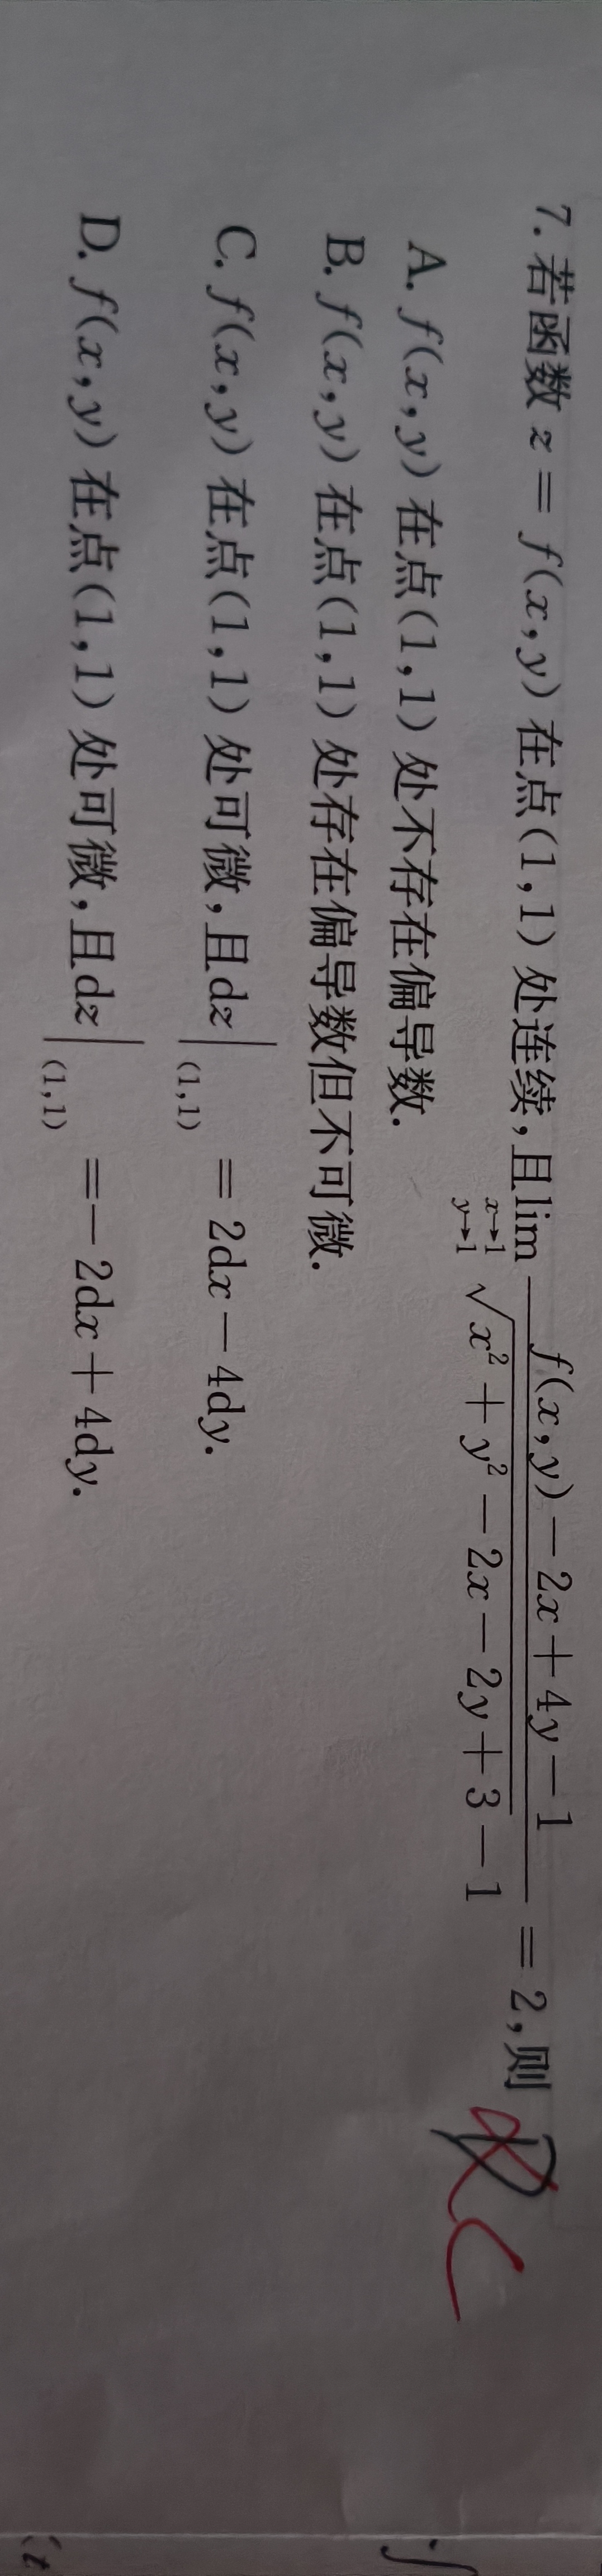 7. 若函数 z = f(x,y) 在点(1,1) 处连续,且lim_{x→1 y→1} \frac{f(x,y)-2x+4y-1}{\sqrt{x^2+y^2-2x-2y+3}-1} = 2,则 D C
A. f(x,y) 在点(1,1) 处不存在偏导数.
B. f(x,y) 在点(1,1) 处存在偏导数但不可微.
C. f(x,y) 在点(1,1) 处可微,且dz|_{(1,1)} = 2dx-4dy.
D. f(x,y) 在点(1,1) 处可微,且dz|_{(1,1)} =-2dx+4dy.